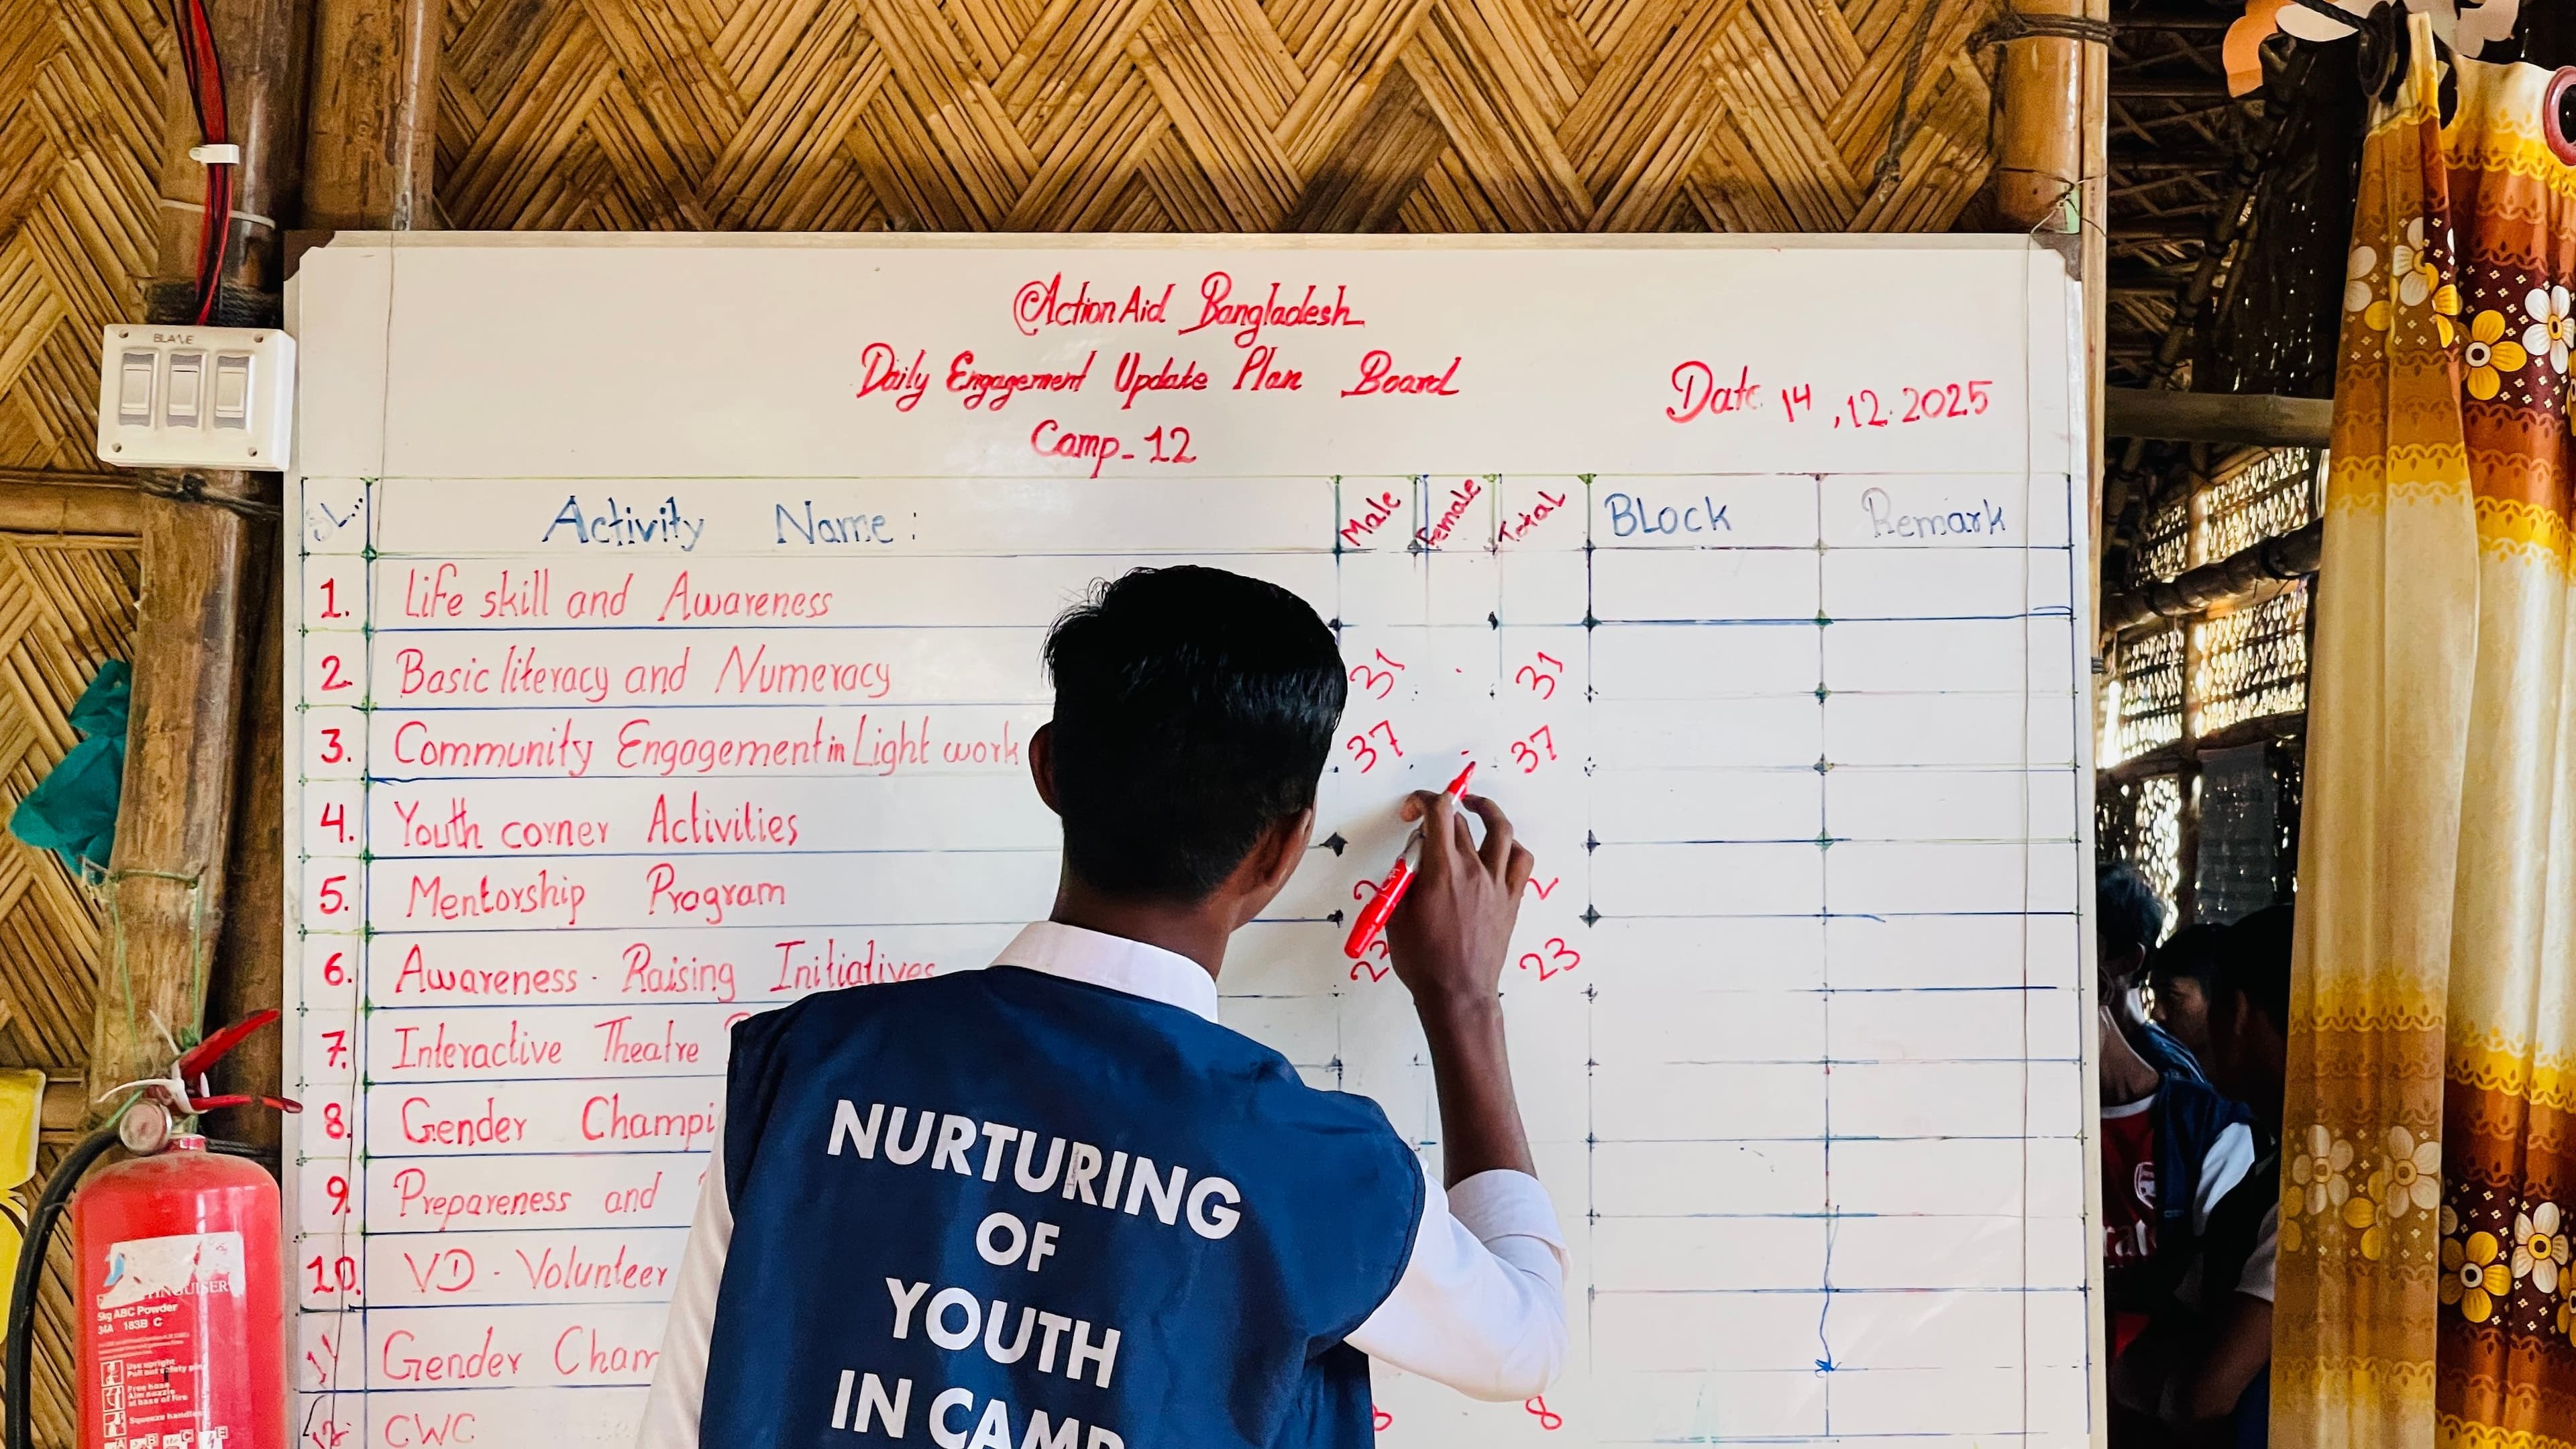 BLAZE
ActionAid Bangladesh
Daily Engagement Update Plan Board
Camp-12
Date 14,12.2025
SL... Activity Name: Male Female Total BLock Remark
1. Life skill and Awareness
2. Basic literacy and Numeracy 31 31
3. Community Engagement in Light work 37 37
4. Youth corner Activities
5. Mentorship Program 2 2
6. Awareness-Raising Initiatives 23 23
7. Interactive Theatre
8. Gender Champi
9. Prepareness and
10. VD-Volunteer
11 Gender Cham
12. CWC 8
NURTURING
OF
YOUTH
IN CAMP
5kg ABC Powder
34A 183B C
Use upright
Pull out safety pin
Free hose
Aim nozzle
at base of fire
Squeeze handle